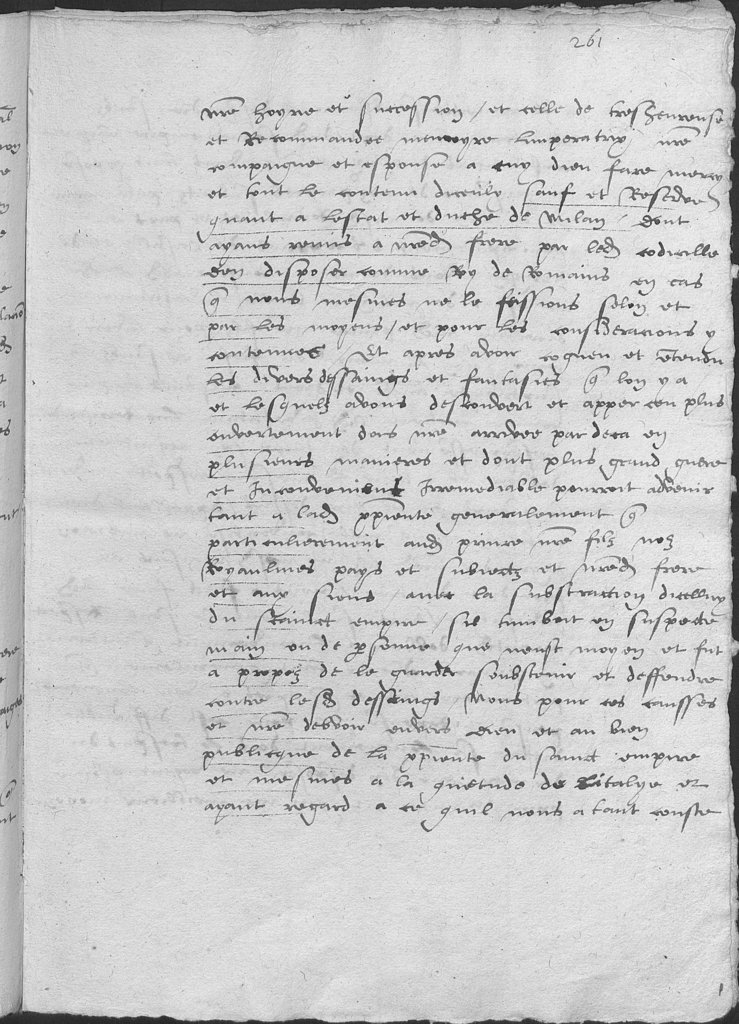 261
nre hoyrie et succession / et celle de tresheureuse
et Recommandee memoyre Limperatrix nre
compaigne et espouse a cuy dieu face mercy
et tout le contenu diceulx sauf et Reserve
quant a lestat et duche de milan / dont
ayans remis a nred frere par led codicille
den disposer comme Roy de Romains en cas
q nous mesmes ne le feissions selon et
par les moyens / et pour les consideracions y
contenues / Et apres avoir cogneu et entendu
les divers dessaings et fantasies q lon y a
et lesquelz avons descouvert et apperceu plus
ouvertement dois nre arrivee par deca en
plusieurs manieres et dont plus grand guere
et Inconvenient Irremediable pourroit advenir
tant a lad xpiente generalement q
particulierement aud prince nre filz noz
Royaulmes pays et subiectz et nred frere
et aux siens / avec la substraction dicelluy
du sainct empire / sil tumboit en suspecte
main ou de psonne que neust moyen et fut
a propoz de le garder soubstenir et deffendre
contre lesd dessaings / Nous pour ces causses
et nre debvoir envers dieu et au bien
publicque de la xpiente du sainct empire
et mesmes a la quietude de Litalye et
ayant regard a ce quil nous a tant couste